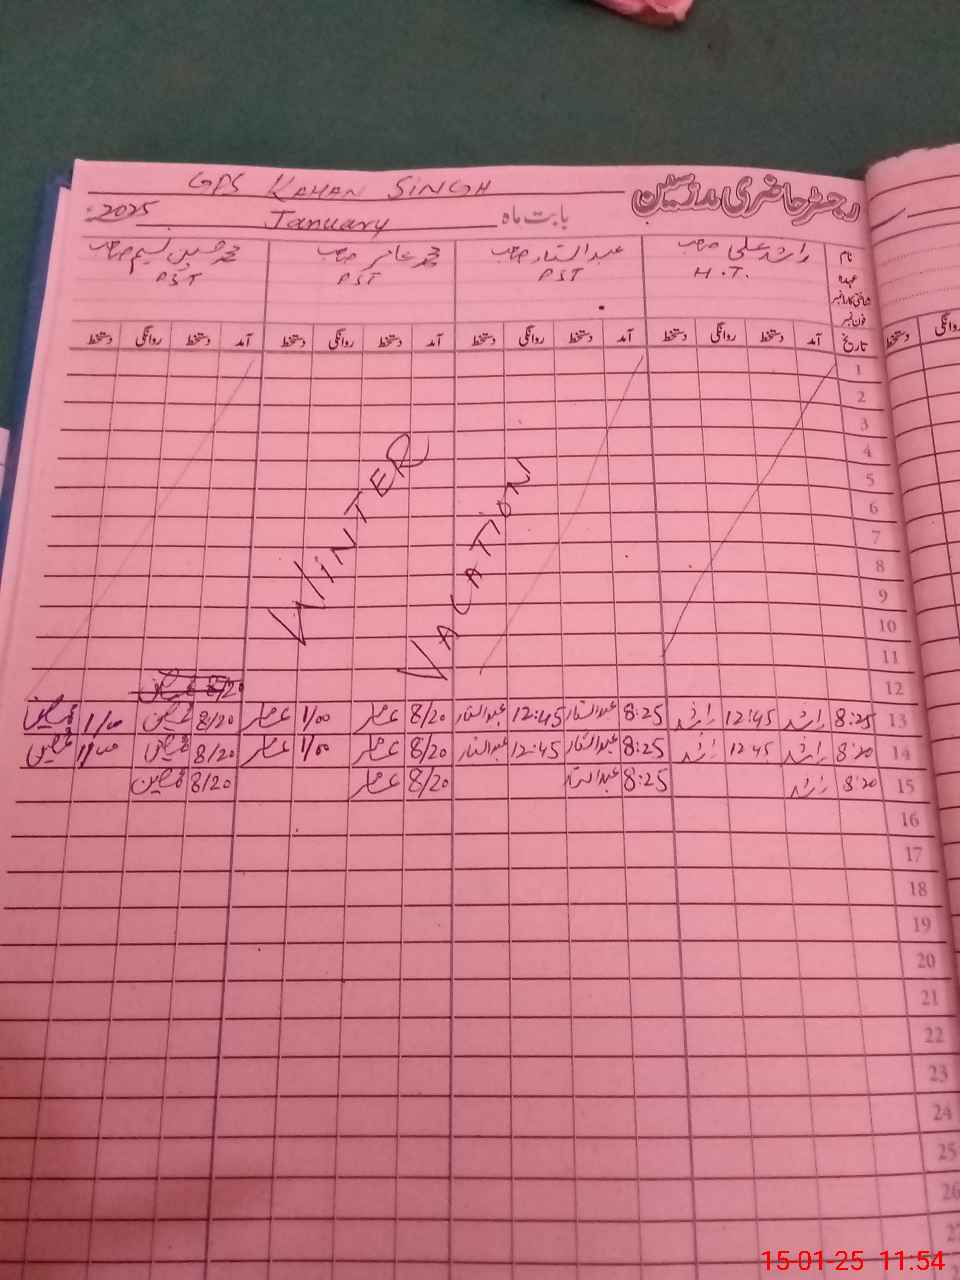 GPS KAHAN SINGH
رجسٹر حاضری مدرسین
2025 January بابت ماہ
نام راشد علی صاحب عبدالستار صاحب محمد عامر صاحب محمد حسین نسیم صاحب
عہدہ H.T. PST PST PST
شناختی کارڈ نمبر
فون نمبر
تاریخ آمد دستخط روانگی دستخط آمد دستخط روانگی دستخط آمد دستخط روانگی دستخط آمد دستخط روانگی دستخط
روانگی دستخط
1
2
3
4
5
6
7
8
9
10
11
12
WINTER
VACATION
8/20
13 8:25 راشد 12:45 راشد 8:25 عبدالستار 12:45 عبدالستار 8/20 عامر 1/00 عامر 8/20 1/00
14 8:20 راشد 12 45 راشد 8:25 عبدالستار 12:45 عبدالستار 8/20 عامر 1/00 عامر 8/20 1/00
15 8:20 راشد 8:25 عبدالستار 8/20 عامر 8/20
16
17
18
19
20
21
22
23
24
25
26
27
15-01-25 11:54